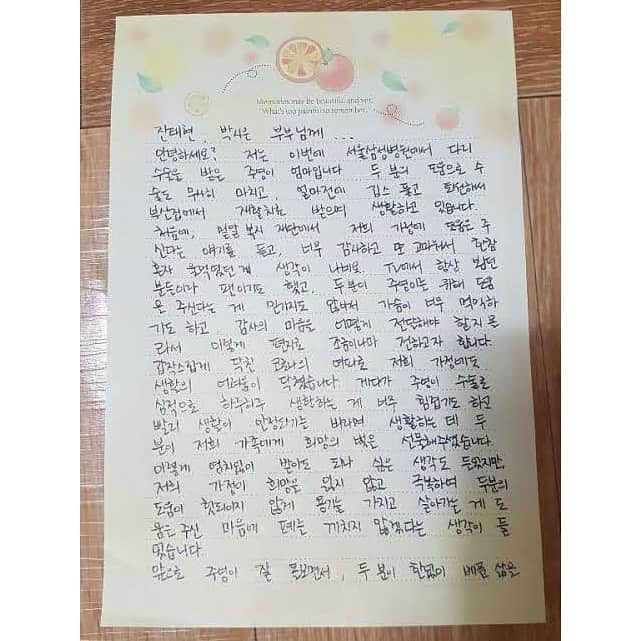 Memories may be beautiful and yet,
What's too painful to remember.
진태현, 박시은 부부님께 ...
안녕하세요? 저는 이번에 서울삼성병원에서 다리
수술을 받은 주영이 엄마입니다 두 분의 도움으로 수
술도 무사히 마치고, 얼마전에 깁스 풀고 퇴원해서
부산집에서 재활치료 받으며 생활하고 있습니다.
처음에, 밀알 복지 재단에서 저희 가정에 도움을 주
신다는 얘기를 듣고, 너무 감사하고 또 고마워서 한참
혼자 울먹였던 게 생각이 나네요. TV에서 항상 봤던
분들이라 팬이기도 했고, 두 분이 주영이를 위해 도움
을 주신다는 게 믿기지도 않아서 가슴이 너무 먹먹하
기도 하고, 감사의 마음을 어떻게 전달해야 할지 몰
라서 이렇게 편지로 조금이나마 전하고자 합니다.
갑작스럽게 닥친 코로나의 여파로 저희 가정에도
생활의 어려움이 닥쳤습니다 게다가 주영이 수술로
심적으로 하루하루 생활하는 게 너무 힘겹기도 하고
빨리 생활이 안정되기는 바라며 생활하는 데 두
분이 저희 가족에게 희망의 빛을 선물해주셨습니다.
이렇게 염치없이 받아도 되나 싶은 생각도 들었지만,
저희 가정이 희망을 잃지 않고 극복하며 두분의
도움이 헛되이지 않게 용기를 가지고 살아가는 게 도
움을 주신 마음에 폐를 끼치지 않겠다는 생각이 들
었습니다
앞으로 주영이 잘 돌보면서, 두 분이 한없이 베푼 삶을